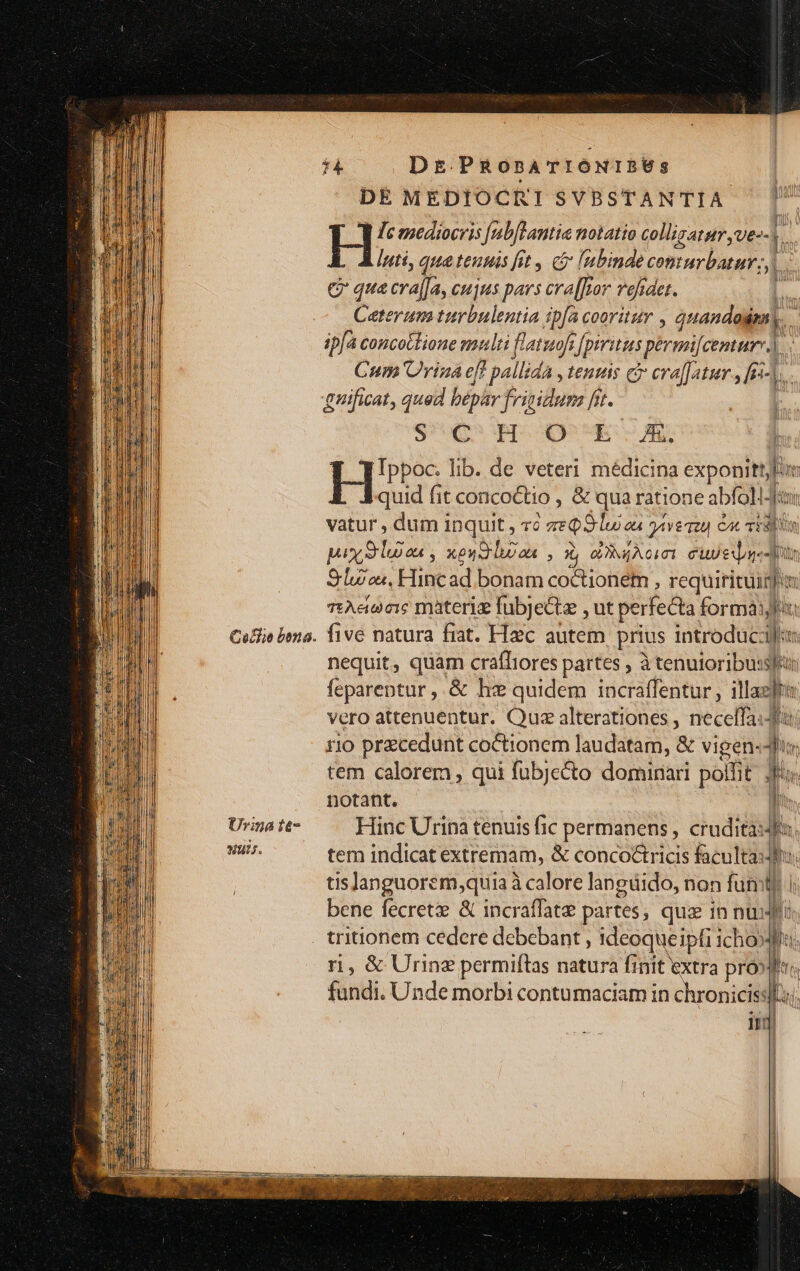 14 DE PROBATIONIBUS
DE MEDIOCRI SVBSTANTIA
HIc mediocris ſubſtantiæ notatio colligatur, ve-
luti, quæ tenuis fit, & ſubinde conturbatur,
& quæ craſſa, cujus pars craſſior reſidet.
Cæterum turbulentia ipſa cooritur, quando in
ipſa concoctione multi flatuoſi ſpiritus permiſcentur.
Cum Urina eſt pallida, tenuis & craſſatur, ſi-
gnificat, quod hepar frigidum ſit.
SCHOLIÆ.
HIppoc. lib. de veteri medicina exponit,
quid fit concoctio, & qua ratione abſol-
vatur, dum inquit,
Hinc ad bonam coctionem, requiritur
materiæ ſubjectæ, ut perfecta forma,
Coctio bona. ſive natura fiat. Hæc autem prius introduci
nequit, quam craſſiores partes, à tenuioribus
ſeparentur, & hæ quidem incraſſentur, illæ
vero attenuentur. Quæ alterationes, neceſſa-
rio præcedunt coctionem laudatam, & vigen-
tem calorem, qui ſubjecto dominari poſſit
notant.
Urina te- Hinc Urina tenuis ſic permanens, crudita-
nuis. tem indicat extremam, & concoctricis faculta-
tis languorem, quia à calore languido, non ſunt
bene ſecretæ & incraſſatæ partes, quæ in nu-
tritionem cedere debebant, ideoque ipſi icho-
ri, & Urinæ permiſtas natura ſinit extra pro-
fundi. Unde morbi contumaciam in chronicis